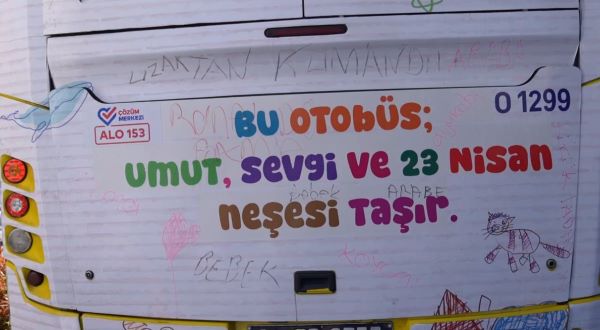 UZAKTAN KUMANDI ARABA
ÇÖZÜM
MERKEZİ
ALO 153
O 1299
BU OTOBÜS;
UMUT, SEVGİ VE 23 NİSAN
ARABE
NEŞESİ TAŞIR.
BEBEK